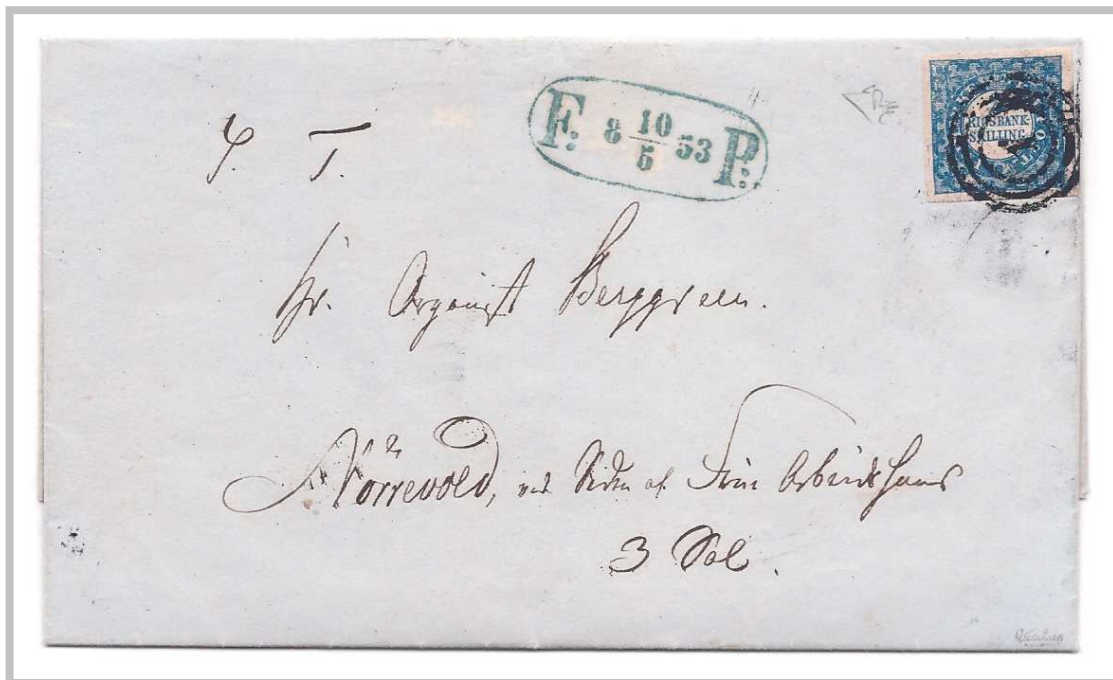 F: 8 10/5 53 P:
RIGSBANK-
SKILLING
Hr. Organist Berggreen.
Nörrevold, ved Siden af Frue Arbeidshuus
3 Sal.